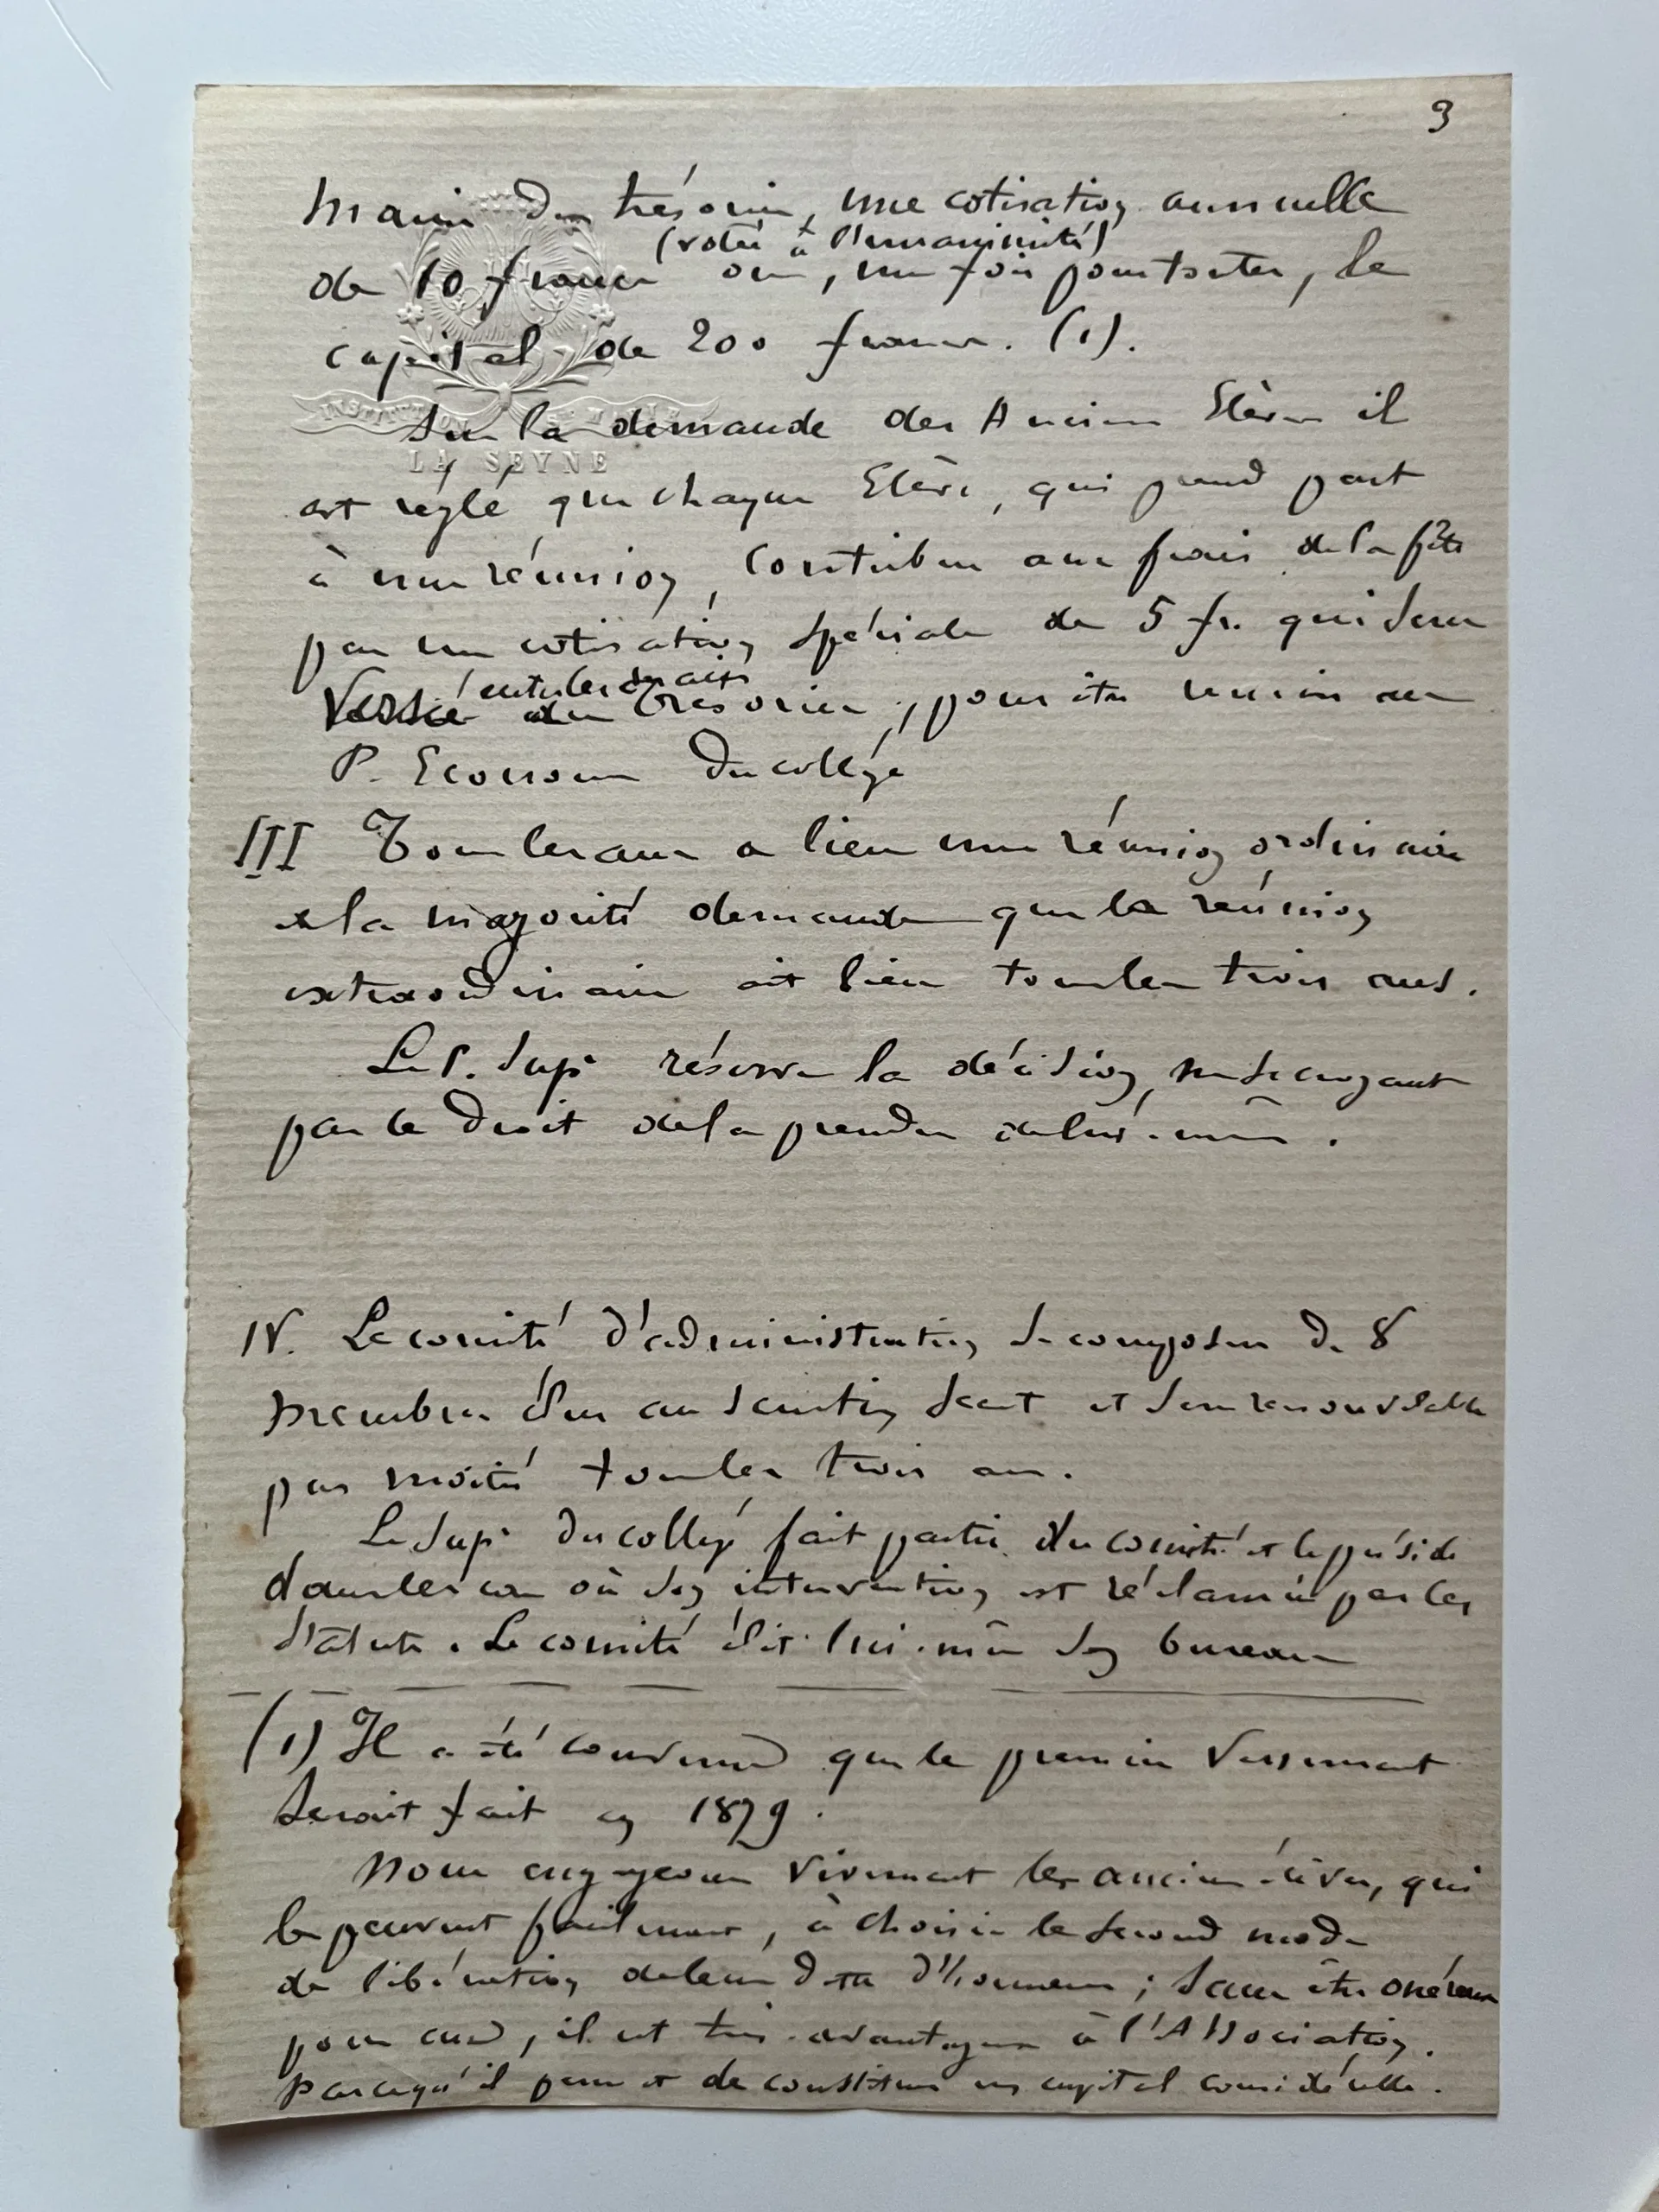 3
mains du trésorier, une cotisation annuelle
(votée à l'unanimité)
de 10 francs ou, une fois pour toutes, le
capital de 200 francs. (1).
INSTITUTION
Sur la demande des Anciens Elèves il
LA SEYNE
est réglé que chaque Elève, qui prend part
à une réunion, contribue aux frais de la fête
par une cotisation spéciale de 5 fr. qui sera
entre les mains
Versée du Trésorier, pour être remise au
P. Econome du collège
III Tous les ans a lieu une réunion ordinaire
et la majorité demande que la réunion
extraordinaire ait lieu tous les trois ans.
Le P. Supr réserve la décision, ne se croyant
pas le droit de la prendre de lui-même.
IV. Le comité d'administration se compose de 8
membres élus au scrutin secret et sera renouvelable
par moitié tous les trois ans.
Le Supr du collège fait partie du comité et le préside
dans les cas où son intervention est réclamée par les
statuts. Le comité élit lui-même son bureau
(1) Il a été convenu que le premier versement
serait fait en 1879.
Nous engageons vivement les anciens élèves, qui
le peuvent facilement, à choisir le second mode
de libération de leur dette d'honneur; sans être onéreux
pour eux, il est très-avantageux à l'Association,
parce qu'il permet de constituer un capital considérable.